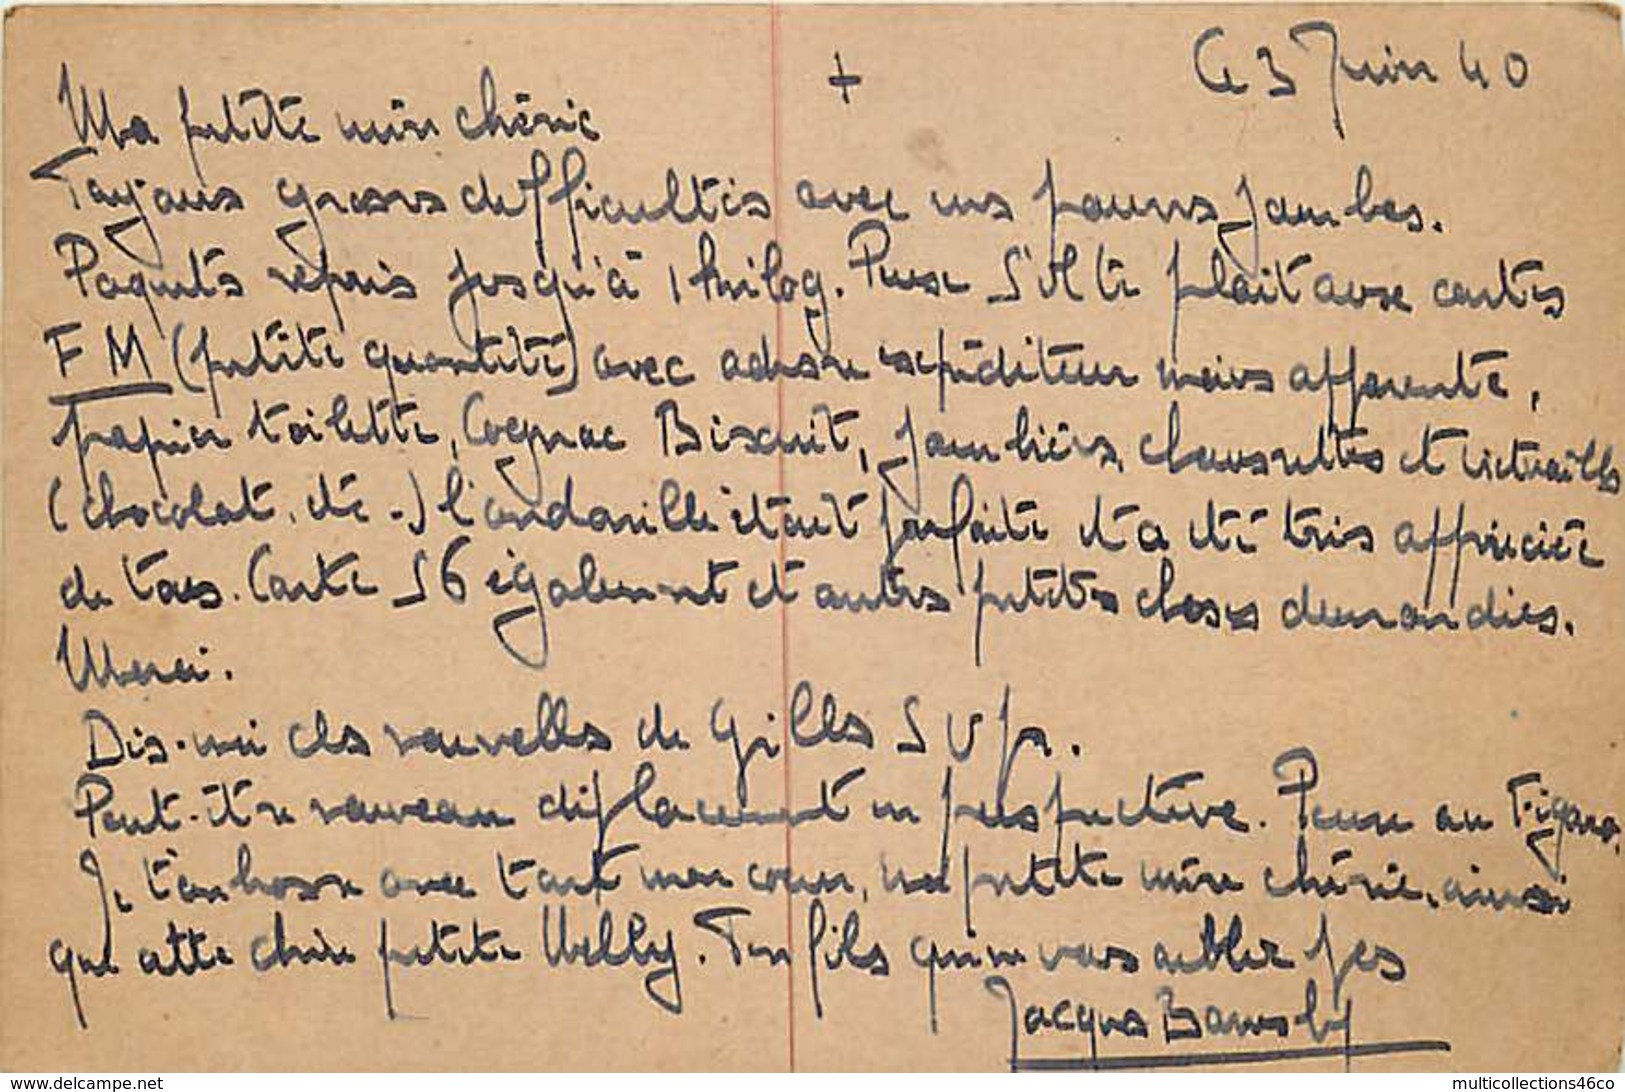 + Ce 3 Juin 40
Ma petite mère chérie
Toujours grosses difficultés avec mes pauvres jambes.
Paquets repris jusqu'à 1 kilog. Pense s'il te plait aux cartes
FM (petite quantité) avec adresse expéditeur moins apparente,
papier toilette, Cognac Biscuit, jambières, chaussettes et victuailles
(chocolat, etc.) l'andouille était parfaite et a été très appréciée
de tous. Carte 56 également et autres petites choses demandées.
Merci.
Dis-moi des nouvelles de Gilles S V p.
Peut-être nouveau déplacement en perspective. Pense au Figaro.
Je t'embrasse avec tout mon coeur, ma petite mère chérie, ainsi
que cette chère petite Welly. Ton fils qui ne vous oublie pas
Jacques
multicollections46co
www.delcampe.net